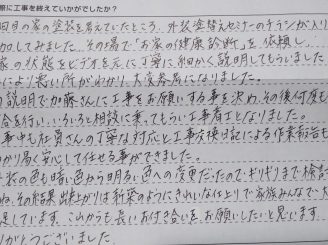 際に工事を終えていかがでしたか？
回目の家の塗装を考えていたところ、外装塗替えセミナーのチラシが入り
加してみました。その場で「お家の健康診断」を依頼し、
家の状態をビデオを元に丁寧に細かく説明してもらいました。
により悪い所がわかり、大変参考になりました。
の説明で加藤さんに工事をお願いする事を決め、その後何度も
合を行い、いろいろ相談に乗ってもらい工事着工となりました。
事中も社員さんの丁寧な対応と工事交換日記による作業報告も
かり易く安心して任せる事ができました。
装の色も暗い色から明るい色への変更だったので、ギリギリまで検討
ね、その結果、出来上がりは新築のようにきれいな仕上りで家族みんなで大
足しています。これからも長いお付き合いをお願いしたいと思います。
りがとうございました。